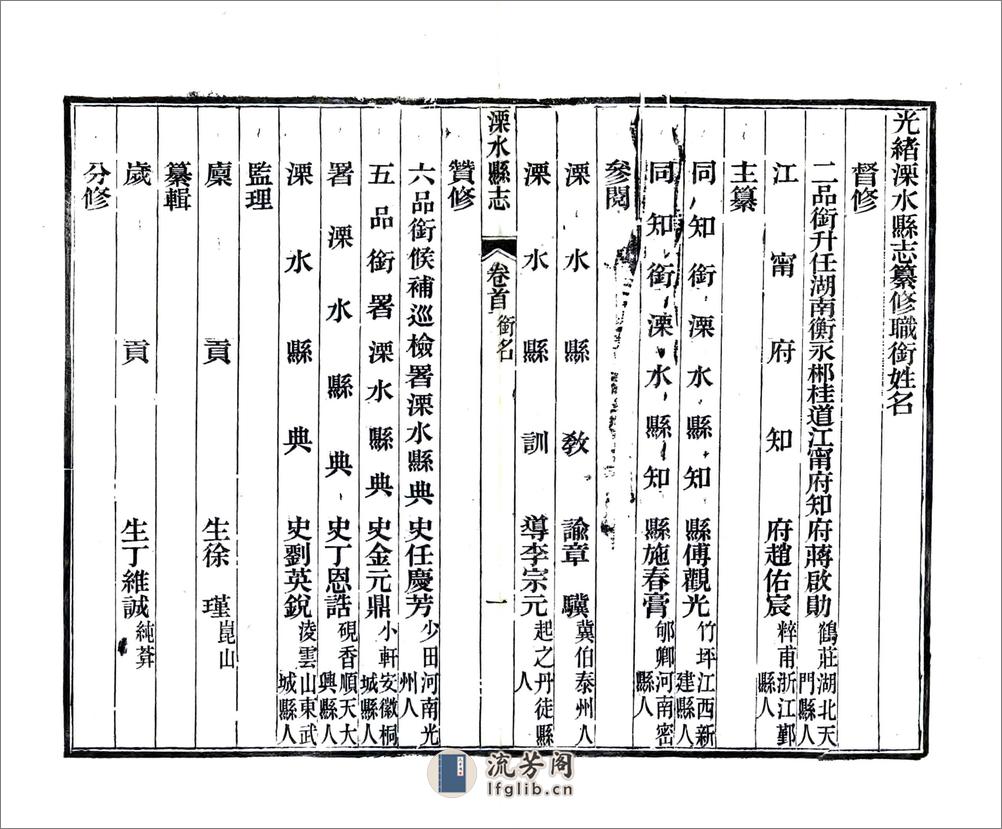 光緒溧水縣志纂修職銜姓名
督修
二品銜升任湖南衡永郴桂道江甯府知府蔣啟勛鶴莊湖北天門縣人
江甯府知府趙佑宸粹甫浙江鄞縣人
主纂
同知銜溧水縣知縣傅觀光竹坪江西新建縣人
同知銜溧水縣知縣施春膏郇卿河南密縣人
參閱
溧水縣教諭章驥冀伯泰州人
溧水縣訓導李宗元起之丹徒縣人
溧水縣志
卷首
銜名
一
贊修
六品銜候補巡檢署溧水縣典史任慶芳少田河南光州人
五品銜署溧水縣典史金元鼎小軒安徽桐城縣人
署溧水縣典史丁恩誥硯香順天大興縣人
溧水縣典史劉英銳淩雲山東武城縣人
監理
廩貢生徐瑾崑山
纂輯
歲貢生丁維誠純葊
分修
流芳阁
lfglib.cn